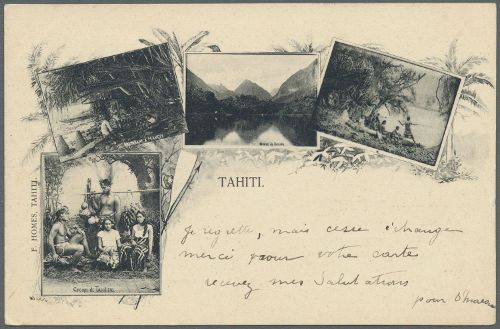 TAHITI.
F. HOMES, TAHITI
Groupe de Tahitiens.
Je regrette, mais cesse échange
merci pour votre carte
recevez mes Salutations
pour